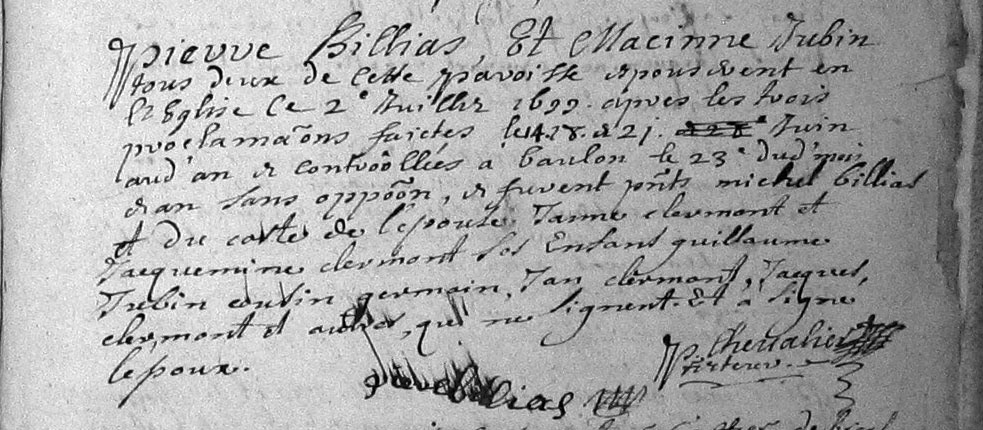 pierre Billias, Et Macinne Jubin
tous deux de Cette paroisse epouserent en
lEglise Ce 2e Juillet 1699. apres les trois
proclamaõns faictes le 14. 18. & 21. Juin
aud' an & controôllées a baulon le 23e dud' mois
& an sans oppõon, & furent pñts michel billias
et du costé de l'épouse Janne clermont et
Jacquemine clermont Enfant guillaume
Jubin cousin germain, Jan clermont, Jacques,
clermont et autres, qui ne signent. Et a signé
lepoux.
P. Chevallier
pierre billias